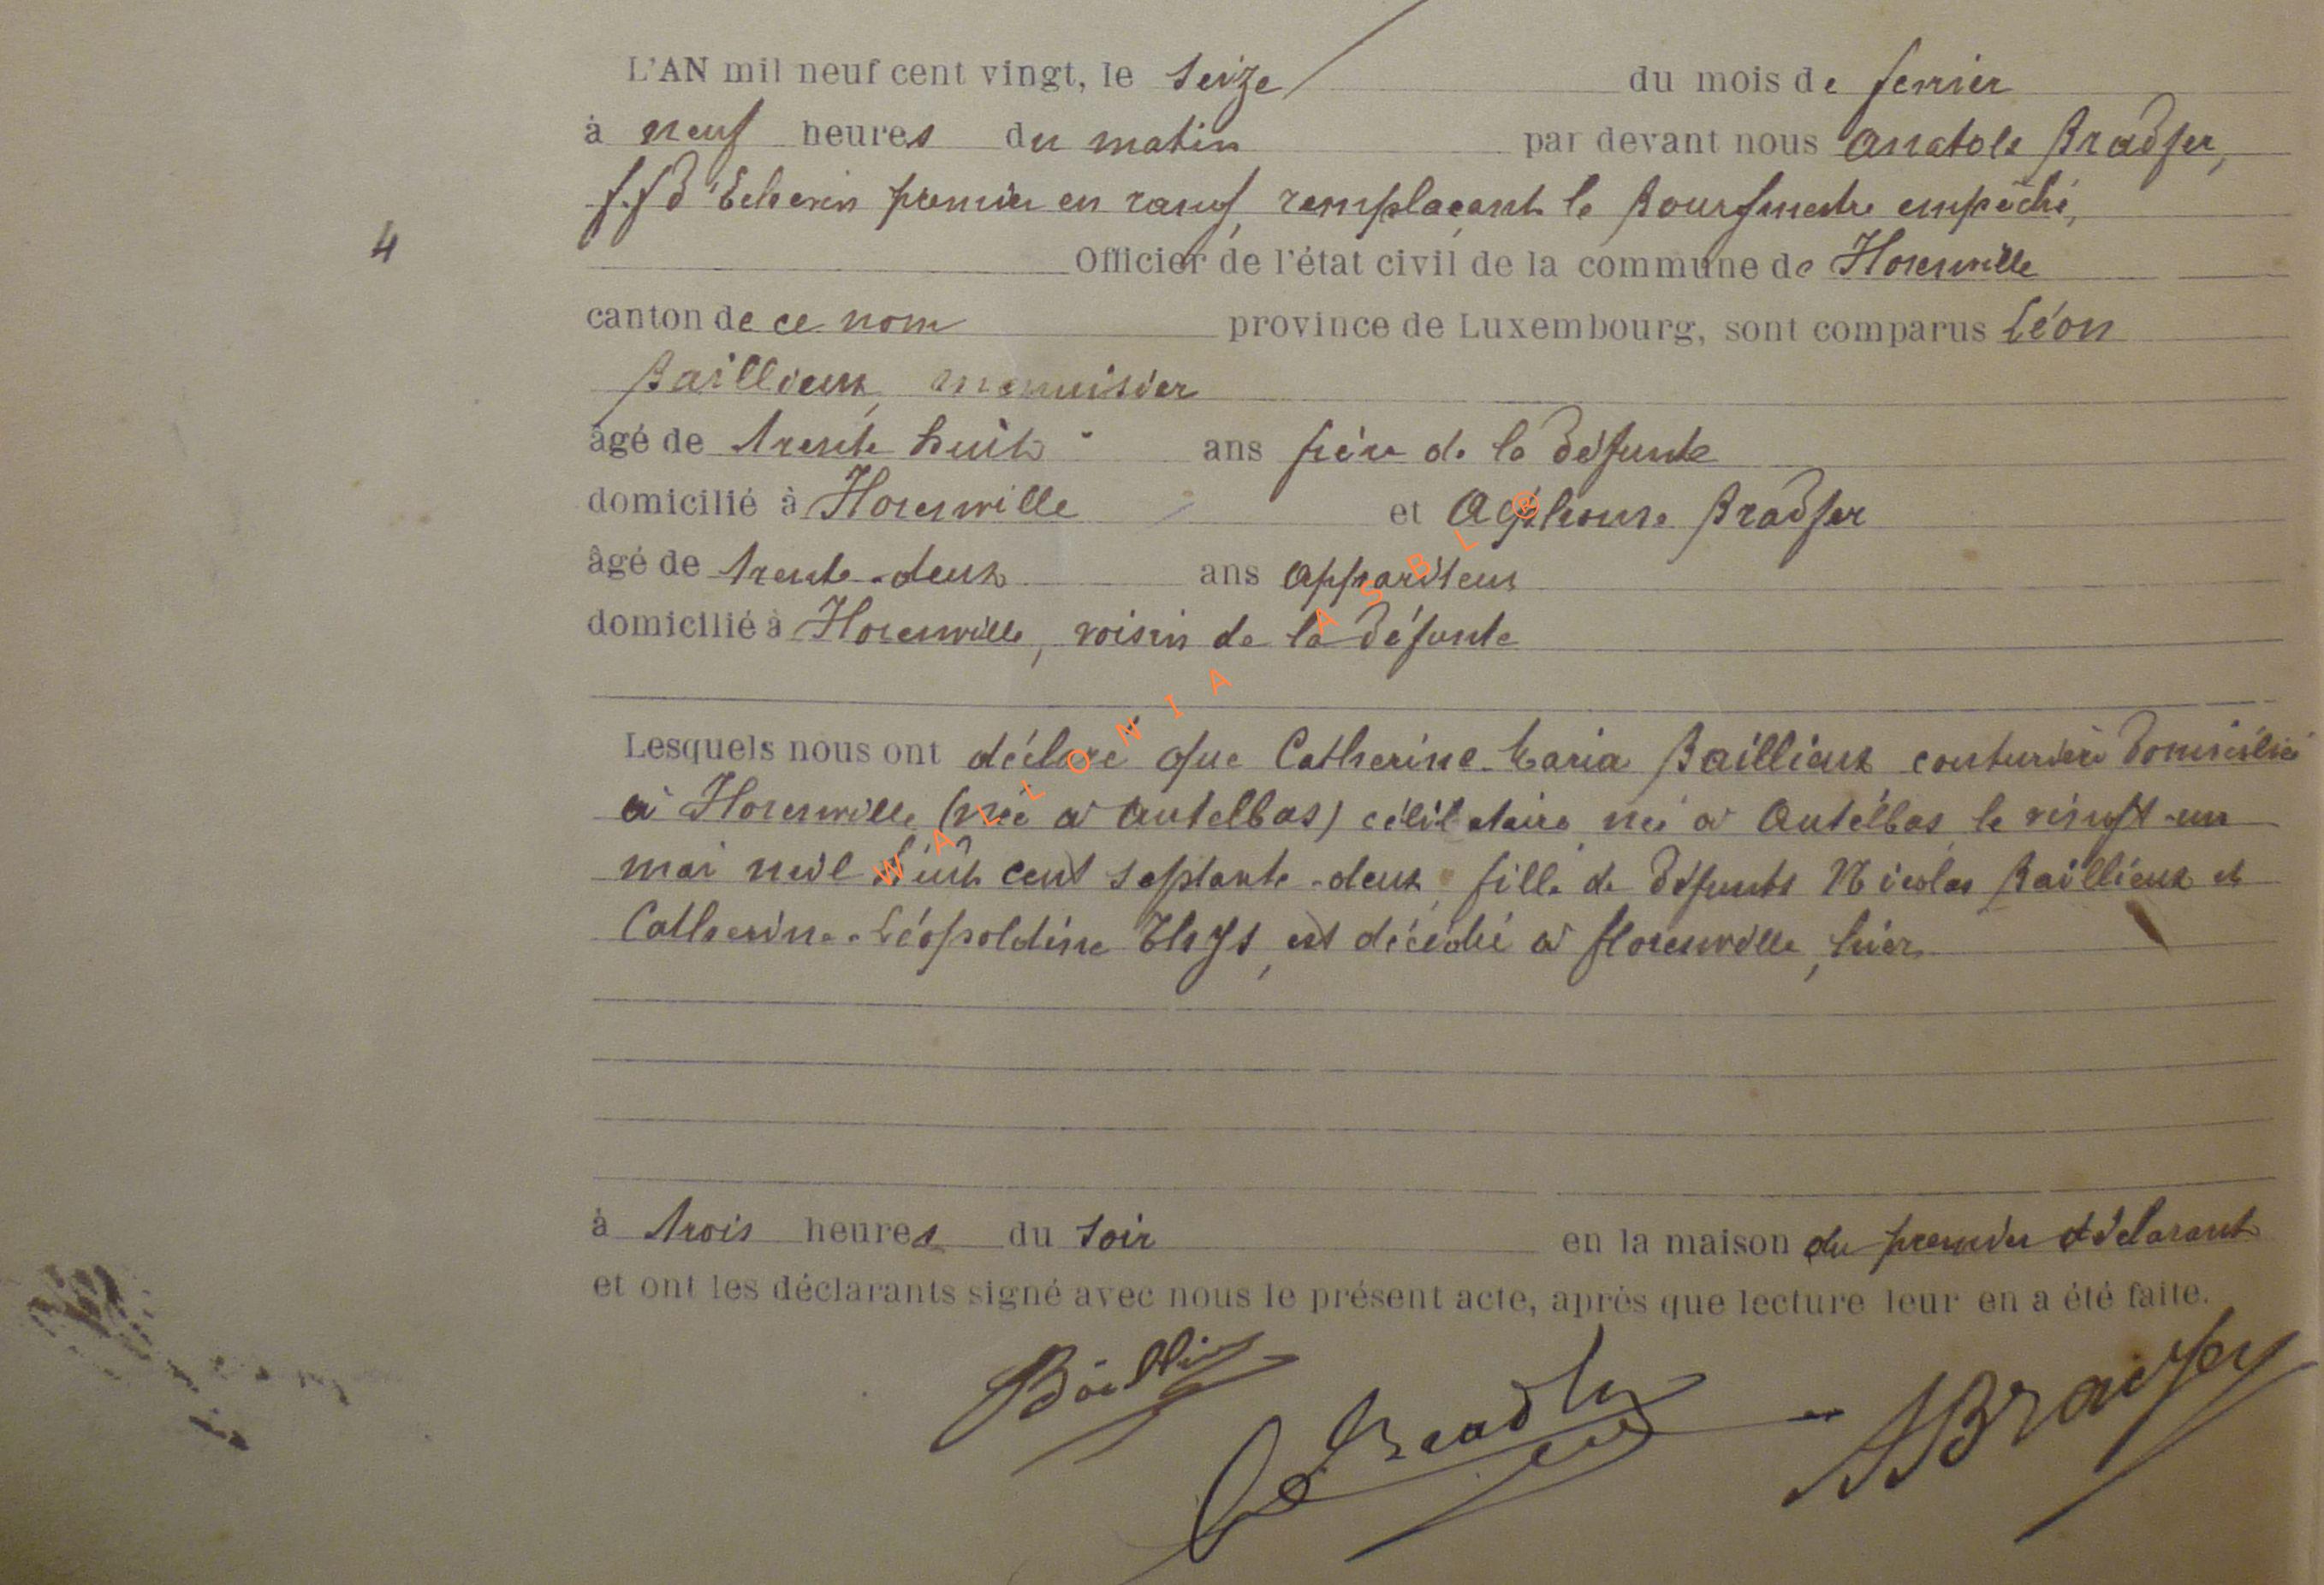 L'AN mil neuf cent vingt, le seize du mois de fevrier
à neuf heures du matin par devant nous Anatole Bradfer,
f.f d'Echevin premier en rang, remplaçant le Bourgmestre empêché,
4
Officier de l'état civil de la commune de Florenville
canton de ce nom province de Luxembourg, sont comparus Léon
Baillieux, menuisier
âgé de trente huit ans frère de la défunte
domicilié à Florenville et Alphonse Bradfer
âgé de trente-deux ans appariteur
domicilié à Florenville, voisin de la défunte
Lesquels nous ont déclaré que Catherine-Maria Baillieux couturière domiciliée
à Florenville (née à Autelbas) célibataire, née à Autelbas, le vingt-un
mai mil huit cent septante-deux, fille de défunts Nicolas Baillieux et
Catherine-Léopoldine Thys, est décédée à Florenville, hier
à trois heures du soir en la maison du premier déclarant
et ont les déclarants signé avec nous le présent acte, après que lecture leur en a été faite.
Baillieux
Bradfer
ABradfer
WALLONIA ASBL ®